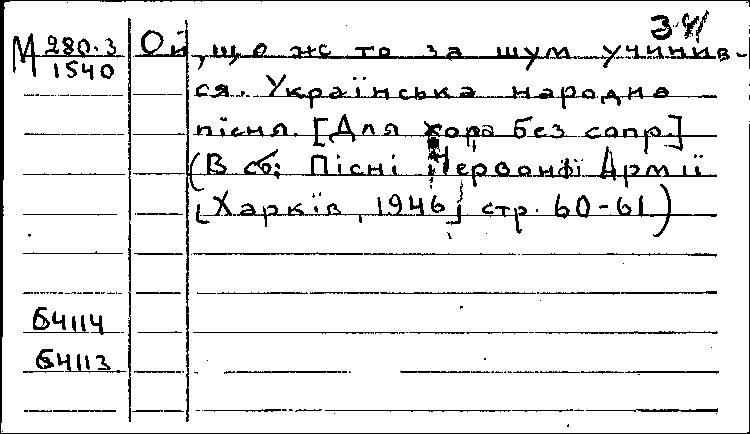 З-41
М 280.3
1540
Ой, що ж то за шум учинив-
ся. Українська народна
пісня. [Для хора без сопр.]
(В сб: Пісні Червоної Армії
[Харків, 1946] стр. 60-61)
64114
64113